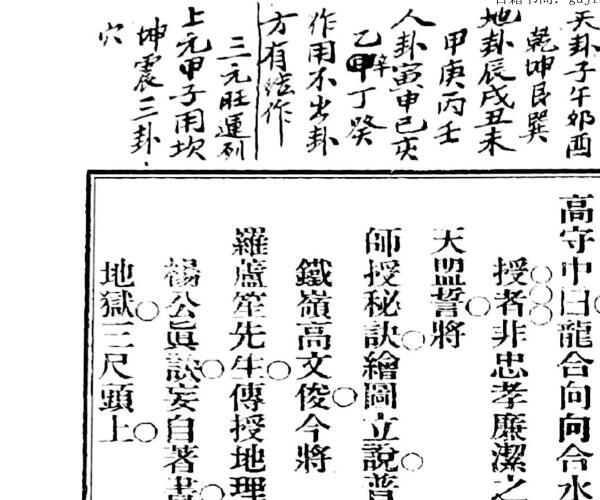 天卦子午卯酉
乾坤艮巽
地卦辰戌丑未
甲庚丙壬
人卦寅申巳亥
乙辛丁癸
作用不出卦
方有法作
三元旺運列
上元甲子用坎
坤震三卦
穴
高守中曰龍合向向合水
授者非忠孝廉潔之
天盟誓將
師授秘訣繪圖立說普
鐵嶺高文俊今將
羅蘆笙先生傳授地理
楊公眞訣妄自著書
地獄三尺頭上